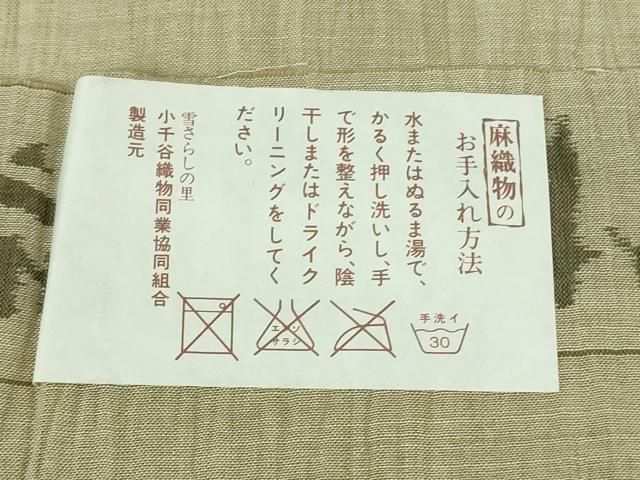 麻織物の
お手入れ方法
水またはぬるま湯で、
かるく押し洗いし、手
で形を整えながら、陰
干しまたはドライク
リーニングをしてく
ださい。
雪さらしの里
小千谷織物同業協同組合
製造元
エンソ
サラシ
手洗イ
30